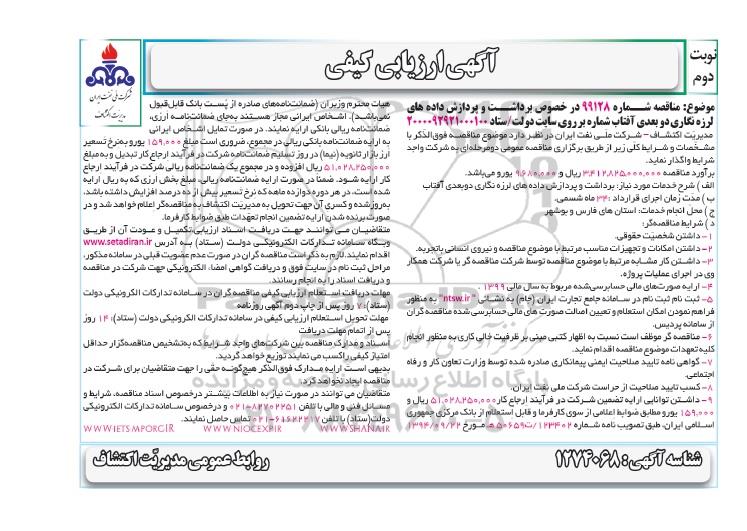 نوبت
دوم
آگهی ارزیابی کیفی
شرکت ملی نفت ایران
مدیریت اکتشاف
موضوع: مناقصه شـــماره ۹۹۱۲۸ در خصوص برداشـــت و پردازش داده های
لرزه نگاری دو بعدی آفتاب شماره بر روی سایت دولت/ ستاد
مدیریت اکتشـاف – شرکت ملـی نفت ایران در نظـر دارد موضوع مناقصـه فوق الذکر با
مشـخصات و شـرایط کلی زیر از طریق برگزاری مناقصه عمومی دومرحله‌ای به شـرکت واجد
شرایط واگذار نماید.
برآورد مناقصه ۳،۴۱۲،۸۲۵،۰۰۰،۰۰۰ ریال و ۹،۶۸۰،۰۰۰ یورو می‌باشد.
الف ) شرح خدمات مورد نیاز: برداشت و پردازش داده های لرزه نگاری دوبعدی آفتاب
ب ) مدت زمان اجرای قرارداد :۳۴ ماه شمسی.
ج ) محل انجام خدمات: استان های فارس و بوشهر
د ) شرایط مناقصه‌گر:
۱- داشتن شخصیت حقوقی.
۲- داشتن امکانات و تجهیزات مناسب مرتبط با موضوع مناقصه و نیروی انسانی باتجربه.
۳- داشـتن کار مشـابه مرتبط با موضوع مناقصه توسط شرکت مناقصه گر یا شرکت همکار
وی در اجرای عملیات پروژه.
۴- ارایه صورت‌های مالی حسابرسی‌شده مربوط به سال مالی ۱۳۹۹ .
۵- ثبت نام ثبت نام در سـامانه جامع تجارت ایران (خام) به نشـانی " ntsw.ir" به منظور
فراهم نمودن امکان استعلام و تعیین اصالت صورت های مالی حسابرسی شده مناقصه گران از
سامانه پردیس.
۶- مناقصه گر موظف است نسبت به اظهار کتبی مبنی بر ظرفیت خالی کاری به منظور انجام
کلیه تعهدات موضوع مناقصه اقدام نماید.
۷- گواهی نامه تایید صلاحیت ایمنی پیمانکاری صادره شده توسط وزارت تعاون کار و رفاه
اجتماعی.
۸- کسب تایید صلاحیت از حراست شرکت ملی نفت ایران.
۹- داشـتن توانایی ارایه تضمین شـرکت در فرآیند ارجاع کار ۵۱،۰۲۸،۲۵۰،۰۰۰ ریال و
۱۵۹،۰۰۰ یورو مطابق ضوابط اعلامی از سوی کارفرما و قابل استعلام از بانک مرکزی جمهوری
اسـلامی ایران، طبق تصویب نامه شـماره ۱۲۳۴۰۲/ت۵۰۶۵۹ هـ مـورخ ۱۳۹۴/۰۹/۲۲
هیات محترم وزیران (ضمانت‌نامه‌های صادره از پُســت بانک قابل‌قبول
نمی‌باشـد). اشـخاص ایرانی مجاز هسـتند به‌جای ضمانت‌نامـه ارزی،
ضمانت‌نامه ریالی بانکی ارایه نمایند. در صورت تمایل اشـخاص ایرانی
به ارایه ضمانت‌نامه بانکی ریالی در مجموع، ضروری است مبلغ ۱۵۹،۰۰۰ یورو به‌نرخ تسعیر
ارز بازار ثانویه (نیما) در روز تسلیم ضمانت‌نامه شرکت در فرآیند ارجاع کار تبدیل و به‌مبلغ
۵۱،۰۲۸،۲۵۰،۰۰۰ ریال افزوده و در مجموع یک ضمانت‌نامه ریالی شرکت در فرآیند ارجاع
کار ارایه شـود. ضمناً در صورت ارایه ضمانت‌نامه ریالی، مبلغ بخش ارزی که به ریال ارایه
شده است، در هر دوره دوازده ماهه که نرخ تسعیر بیش از ده درصد افزایش داشته باشد،
به‌روزشده و کسری آن جهت تحویل به مدیریت اکتشاف به مناقصه‌گر اعلام خواهد شد و در
صورت برنده شدن ارایه تضمین انجام تعهدات طبق ضوابط کارفرما.
متقاضیـان مـی تواننـد جهـت دریافـت اسـناد ارزیابی،تکمیـل و عـودت آن از طریـق
وبگاه سـامانه تـدارکات الکترونیکـی دولـت (سـتاد) بـه آدرس www.setadiran.ir
اقدام نمایند.لازم به ذکر است مناقصه گران در صورت عدم عضویت قبلی در سامانه مذکور،
مراحل ثبت نام در سایت فوق و دریافت گواهی امضاء الکترونیکی جهت شرکت در مناقصه
و دریافت اسناد را به انجام رسانند.
مهلت دریافت اسـتعلام ارزیابی کیفی مناقصه گران در سـامانه تدارکات الکترونیکی دولت
(ستاد): ۷ روز پس از چاپ دوم آگهی روزنامه
مهلت تحویل اسـتعلام ارزیابی کیفی در سامانه تدارکات الکترونیکی دولت (ستاد): ۱۴ روز
پس از اتمام مهلت دریافت
اسـناد و مدارک مناقصه بین شرکت‌های واجد شـرایط که به‌تشخیص مناقصه‌گزار حداقل
امتیاز کیفی را کسب می نمایند توزیع خواهد گردید.
بدیهی اسـت ارایه مـدارک فوق‌الذکر هیچ‌گونـه حقی را جهت متقاضیان برای شـرکت در
مناقصه ایجاد نخواهد کرد.
متقاضیان می توانند در صورت نیاز به اطلاعات بیشـتر درخصوص اسناد مناقصه، شرایط و
مسـائل فنی و مالی با تلفن ۸۲۷۰۲۲۵۱-۰۲۱ و درخصوص سـامانه تدارکات الکترونیکی
دولت(ستاد) با تلفن ۶۱۶۲۲۲۱۷-۰۲۱ تماس حاصل نمایند.
WWW.SHANA.IR WWW.NIOCEXP.IR WWW.IETS.MPORG.IR
شناسه آگهی: ۱۲۷۴۰۶۸
روابط عمومی مدیریت اکتشاف